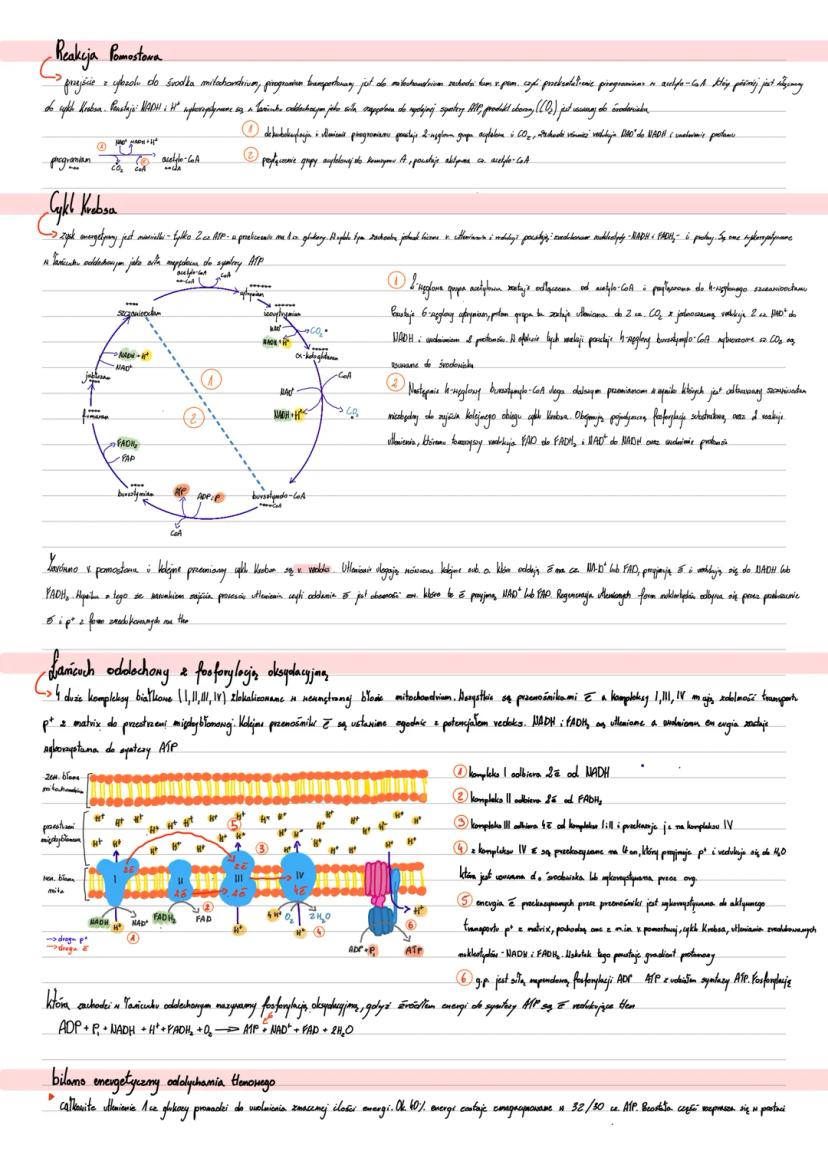 Reakcja Pomostowa
przejście z cytozolu do środka mitochondrium, pirogronian transportowany jest do mitochondrium zachodzi tam r. pom. czyli przekształcenie pirogronianu w acetylo-CoA który później jest włączony
do cyklu Krebsa. Powstają: NADH i H⁺ wykorzystywane są w łańcuchu oddechowym jako siła napędowa do wydajnej syntezy ATP, produkt uboczny (CO₂) jest usuwany do środowiska
① dekarboksylacja i utlenienie pirogronianu powstaje 2-węglowa grupa acetylowa i CO₂, zachodzi również redukcja NAD⁺ do NADH i uwolnienie protonu
① NAD⁺ NADH + H⁺
pirogronian acetylo-CoA
CO₂ CoA ②
② przyłączenie grupy acetylowej do koenzymu A, powstaje aktywna cz. acetylo-CoA
Cykl Krebsa
zysk energetyczny jest niewielki - tylko 2 cz ATP - w przeliczeniu na 1 cz. glukozy. W cyklu tym zachodzą jednak liczne r. utleniania i redukcji powstają: zredukowane nukleotydy - NADH i FADH₂ - i protony. Są one wykorzystywane
w łańcuchu oddechowym jako siła napędowa do syntezy ATP
acetylo-CoA CoA
szczawiooctan
cytrynian
izocytrynian
NAD⁺
NADH + H⁺
CO₂
α-ketoglutaran
CoA
NAD⁺
NADH + H⁺
CO₂
bursztynylo-CoA
ADP + P
ATP
CoA
bursztynian
FAD
FADH₂
fumaran
jabłczan
NAD⁺
NADH + H⁺
①
②
① 2-węglowa grupa acetylowa zostaje odłączona od acetylo-CoA i przyłączona do 4-węglowego szczawiooctanu
Powstaje 6-węglowy cytrynian, potem grupa ta zostaje utleniona do 2 cz. CO₂ z jednoczesną redukcją 2 cz NAD⁺ do
NADH i uwolnieniem 2 protonów. W efekcie tych reakcji powstaje 4-węglowy bursztynylo-CoA wytworzone cz CO₂ są
usuwane do środowiska
② Następnie 4-węglowy bursztynylo-CoA ulega dalszym przemianom w wyniku których jest odtwarzany szczawiooctan
niezbędny do zajścia kolejnego obiegu cyklu Krebsa. Obejmują pojedynczą fosforylację substratową oraz 2 reakcje
utlenienia, któremu towarzyszy redukcja FAD do FADH₂ i NAD⁺ do NADH oraz uwolnienie protonów
Zarówno r. pomostowa i kolejne przemiany cyklu Krebsa są r. redoks. Utlenianie ulegają wówczas kolejne sub. o. które oddają ē na cz. NAD⁺ lub FAD, przyjmują ē i redukują się do NADH lub
FADH₂. Wynika z tego że warunkiem zajścia procesów utleniania czyli oddania ē jest obecność cz. które te ē przyjmą NAD⁺ lub FAD. Regeneracja utlenionych form nukleotydów odbywa się przez przekazanie
ē i p⁺ z form zredukowanych na tlen
Łańcuch oddechowy z fosforylacją oksydacyjną
4 duże kompleksy białkowe (I, II, III, IV) zlokalizowane w wewnętrznej błonie mitochondrium. Wszystkie są przenośnikami ē a kompleksy I, III, IV mają zdolność transportu
p⁺ z matrix do przestrzeni międzybłonowej. Kolejne przenośniki ē są ustawione zgodnie z potencjałem redoks. NADH i FADH₂ są utleniane a uwolniona energia zostaje
wykorzystana do syntezy ATP
zew. błona mitochondrium
przestrzeń międzybłonowa
wew. błona mito
H⁺
I
II
III
IV
2ē
2ē
2ē
4ē
NADH NAD⁺ FADH₂ FAD 4H⁺ O₂ 2H₂O
H⁺
① ② ③ ④ ⑤ ⑥
ADP + Pᵢ ATP
→ droga p⁺
→ droga ē
① kompleks I odbiera 2ē od NADH
② kompleks II odbiera 2ē od FADH₂
③ kompleks III odbiera 4ē od kompleksu I i II i przekazuje je na kompleksu IV
④ z kompleksu IV ē są przekazywane na tlen, który przyjmuje p⁺ i redukuje się do H₂O
która jest usuwana do środowiska lub wykorzystywana przez org.
⑤ energia ē przekazywanych przez przenośniki jest wykorzystywana do aktywnego
transportu p⁺ z matrix, pochodzą one z m.in. r. pomostowej, cyklu Krebsa, utleniania zredukowanych
nukleotydów - NADH i FADH₂. Wskutek tego powstaje gradient protonowy
⑥ g.p. jest siłą napędową fosforylacji ADP ATP z udziałem syntazy ATP. Fosforylację
która zachodzi w łańcuchu oddechowym nazywamy fosforylacją oksydacyjną, gdyż źródłem energii do syntezy ATP są ē redukujące tlen
ADP + Pᵢ + NADH + H⁺ + FADH₂ + O₂ → ATP + NAD⁺ + FAD + 2H₂O
bilans energetyczny oddychania tlenowego
całkowite utlenienie 1 cz glukozy prowadzi do uwolnienia znacznej ilości energii. Ok. 40% energii zostaje zmagazynowane w 32/30 cz. ATP. Pozostała część rozprasza się w postaci